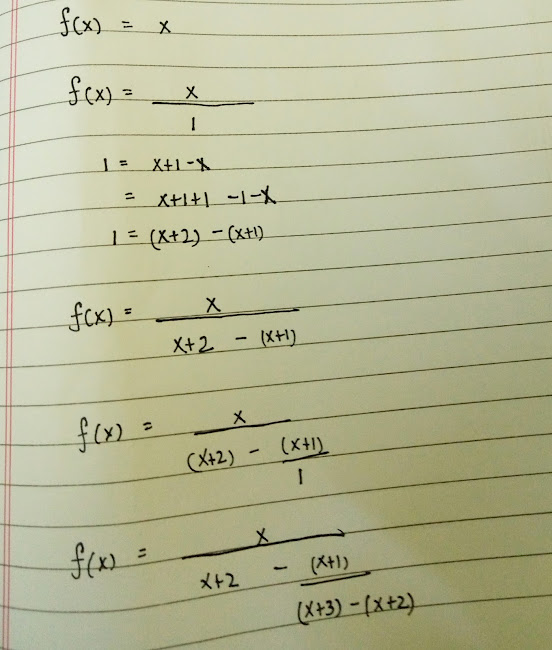 f(x) = x
f(x) = x
1
1 = x+1-x
= x+1+1 -1-x
1 = (x+2) -(x+1)
f(x) = x
x+2 - (x+1)
f(x) = x
(x+2) - (x+1)
1
f(x) = x
x+2 - (x+1)
(x+3) - (x+2)